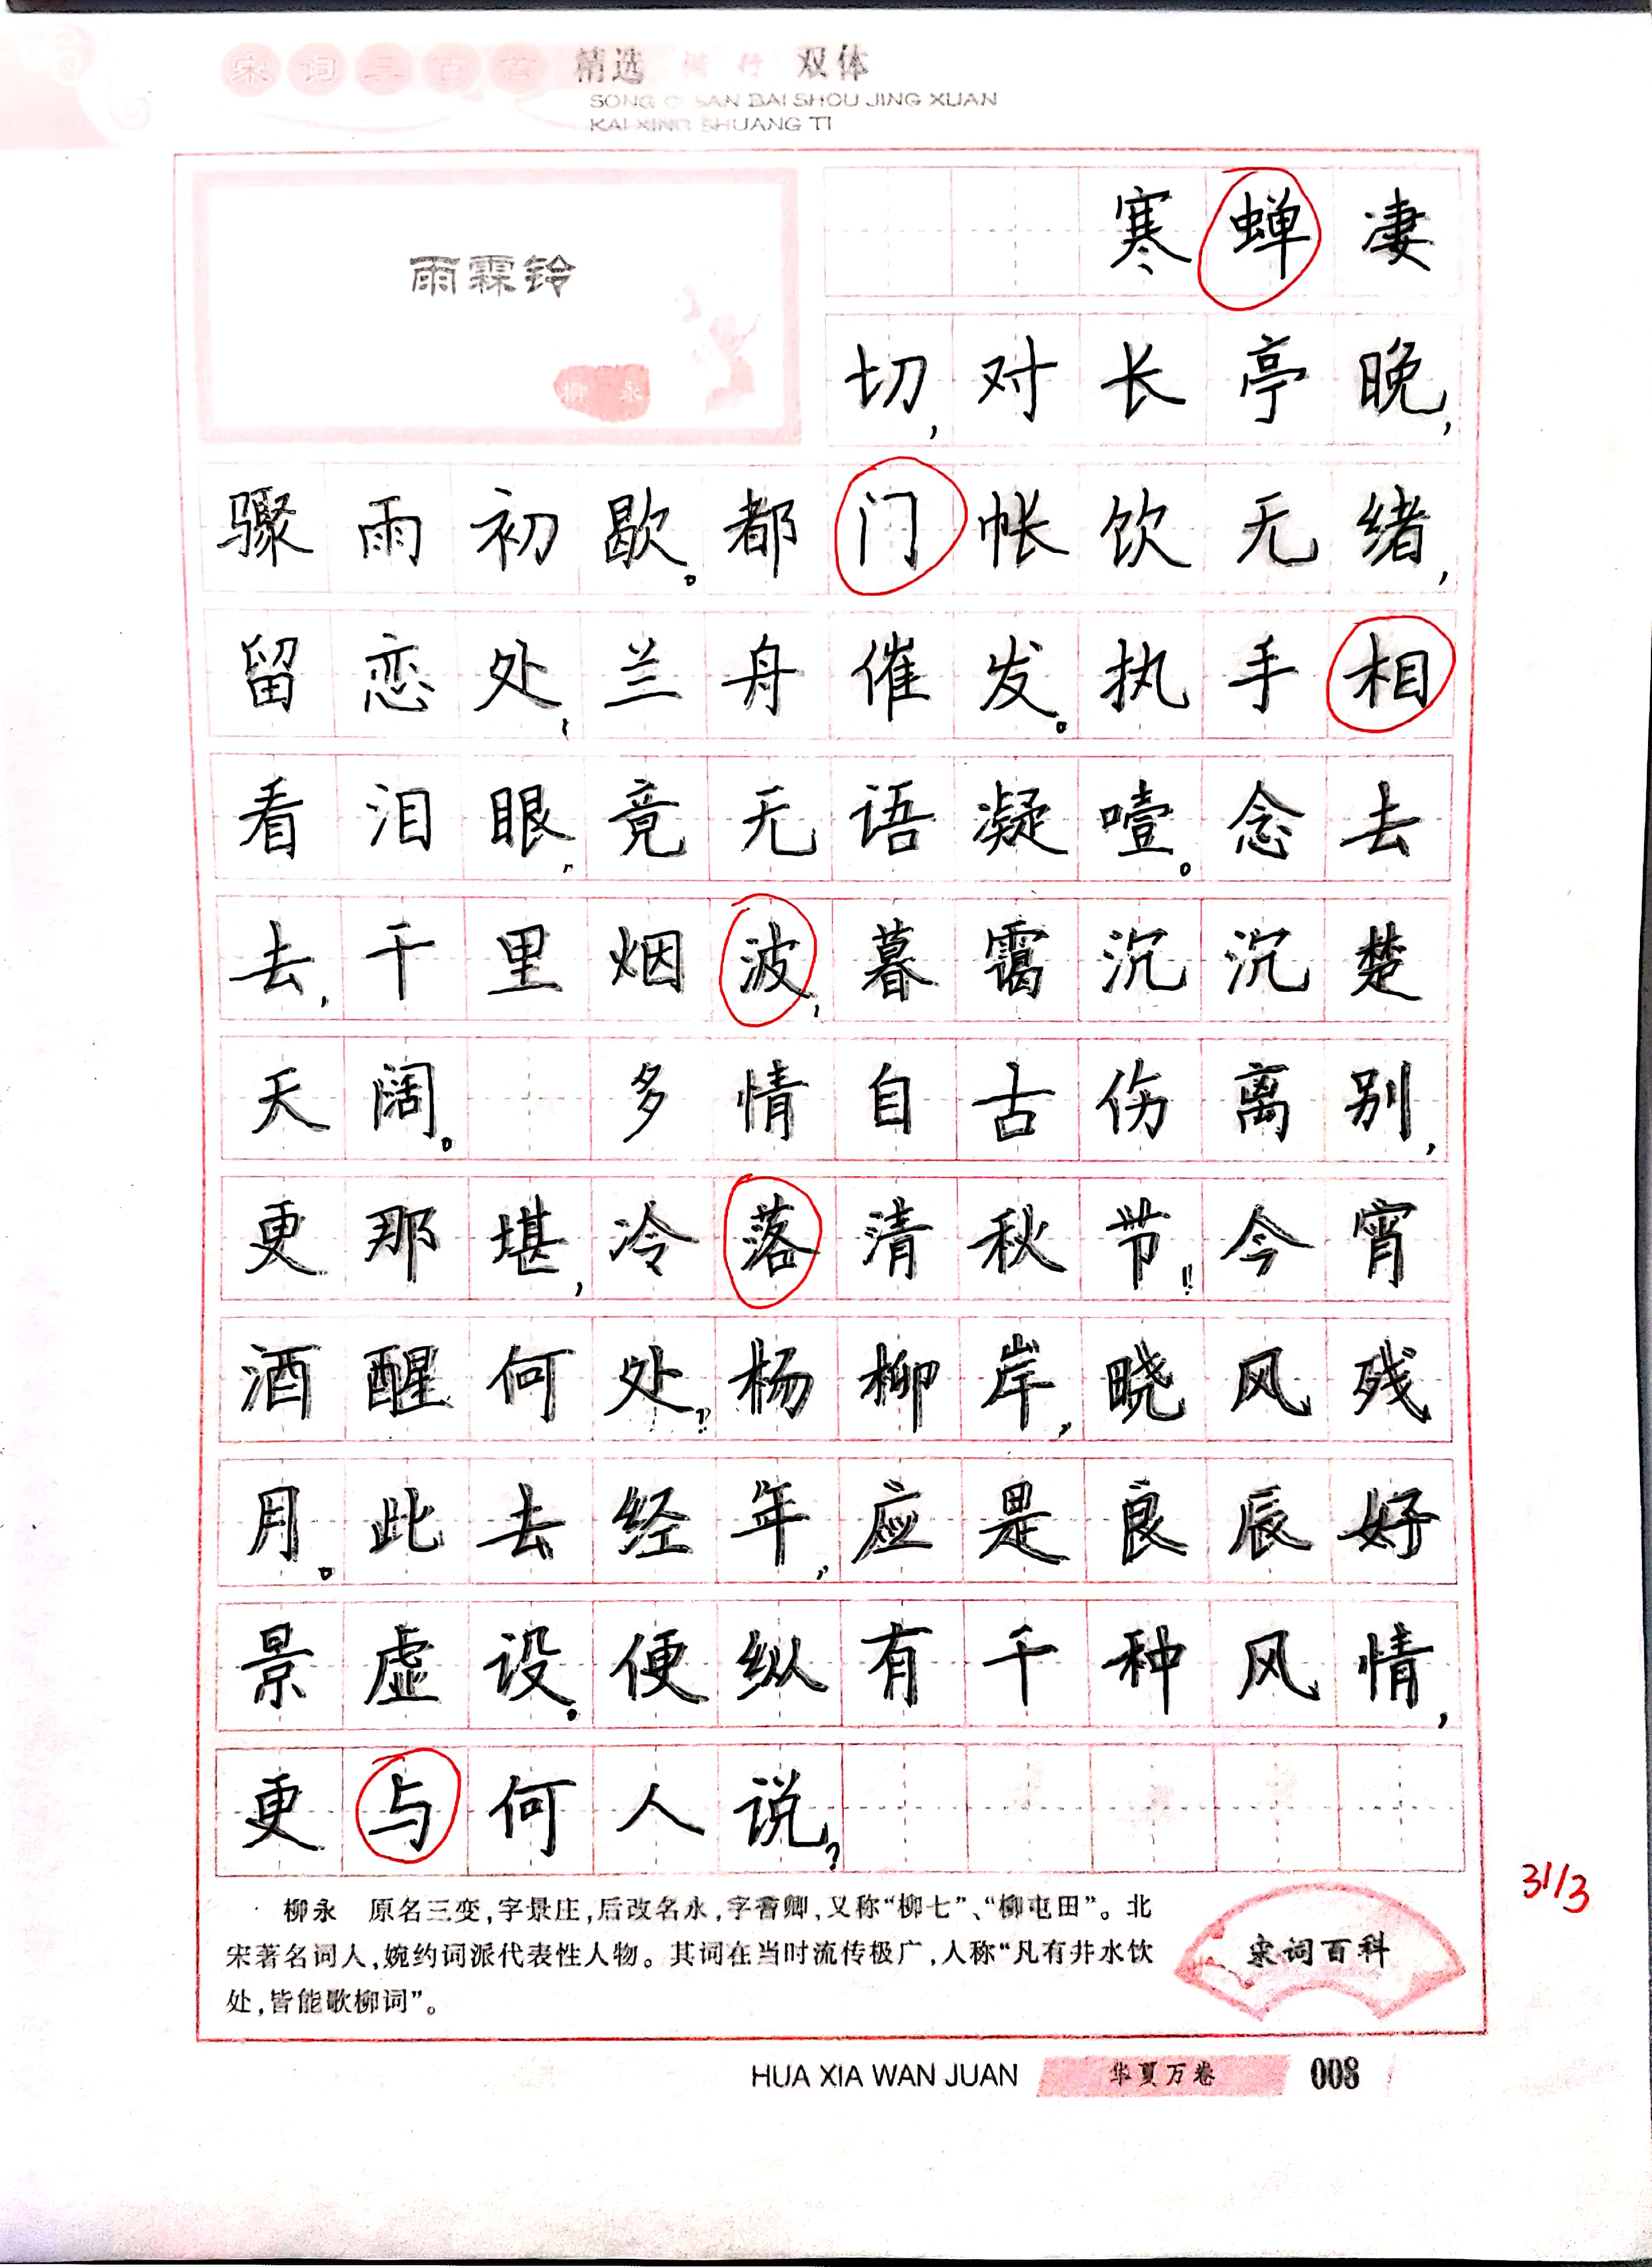 宋词三百首 精选 楷行 双体
SONG CI SAN BAI SHOU JING XUAN
KAI XING SHUANG TI
雨霖铃
柳永
寒蝉凄
切,对长亭晚,
骤雨初歇。都门帐饮无绪,
留恋处,兰舟催发。执手相
看泪眼,竟无语凝噎。念去
去,千里烟波,暮霭沉沉楚
天阔。 多情自古伤离别,
更那堪,冷落清秋节!今宵
酒醒何处?杨柳岸,晓风残
月。此去经年,应是良辰好
景虚设。便纵有千种风情,
更与何人说?
柳永 原名三变,字景庄,后改名永,字耆卿,又称“柳七”、“柳屯田”。北
宋著名词人,婉约词派代表性人物。其词在当时流传极广,人称“凡有井水饮
处,皆能歌柳词”。
宋词百科
31/3
HUA XIA WAN JUAN 华夏万卷 008